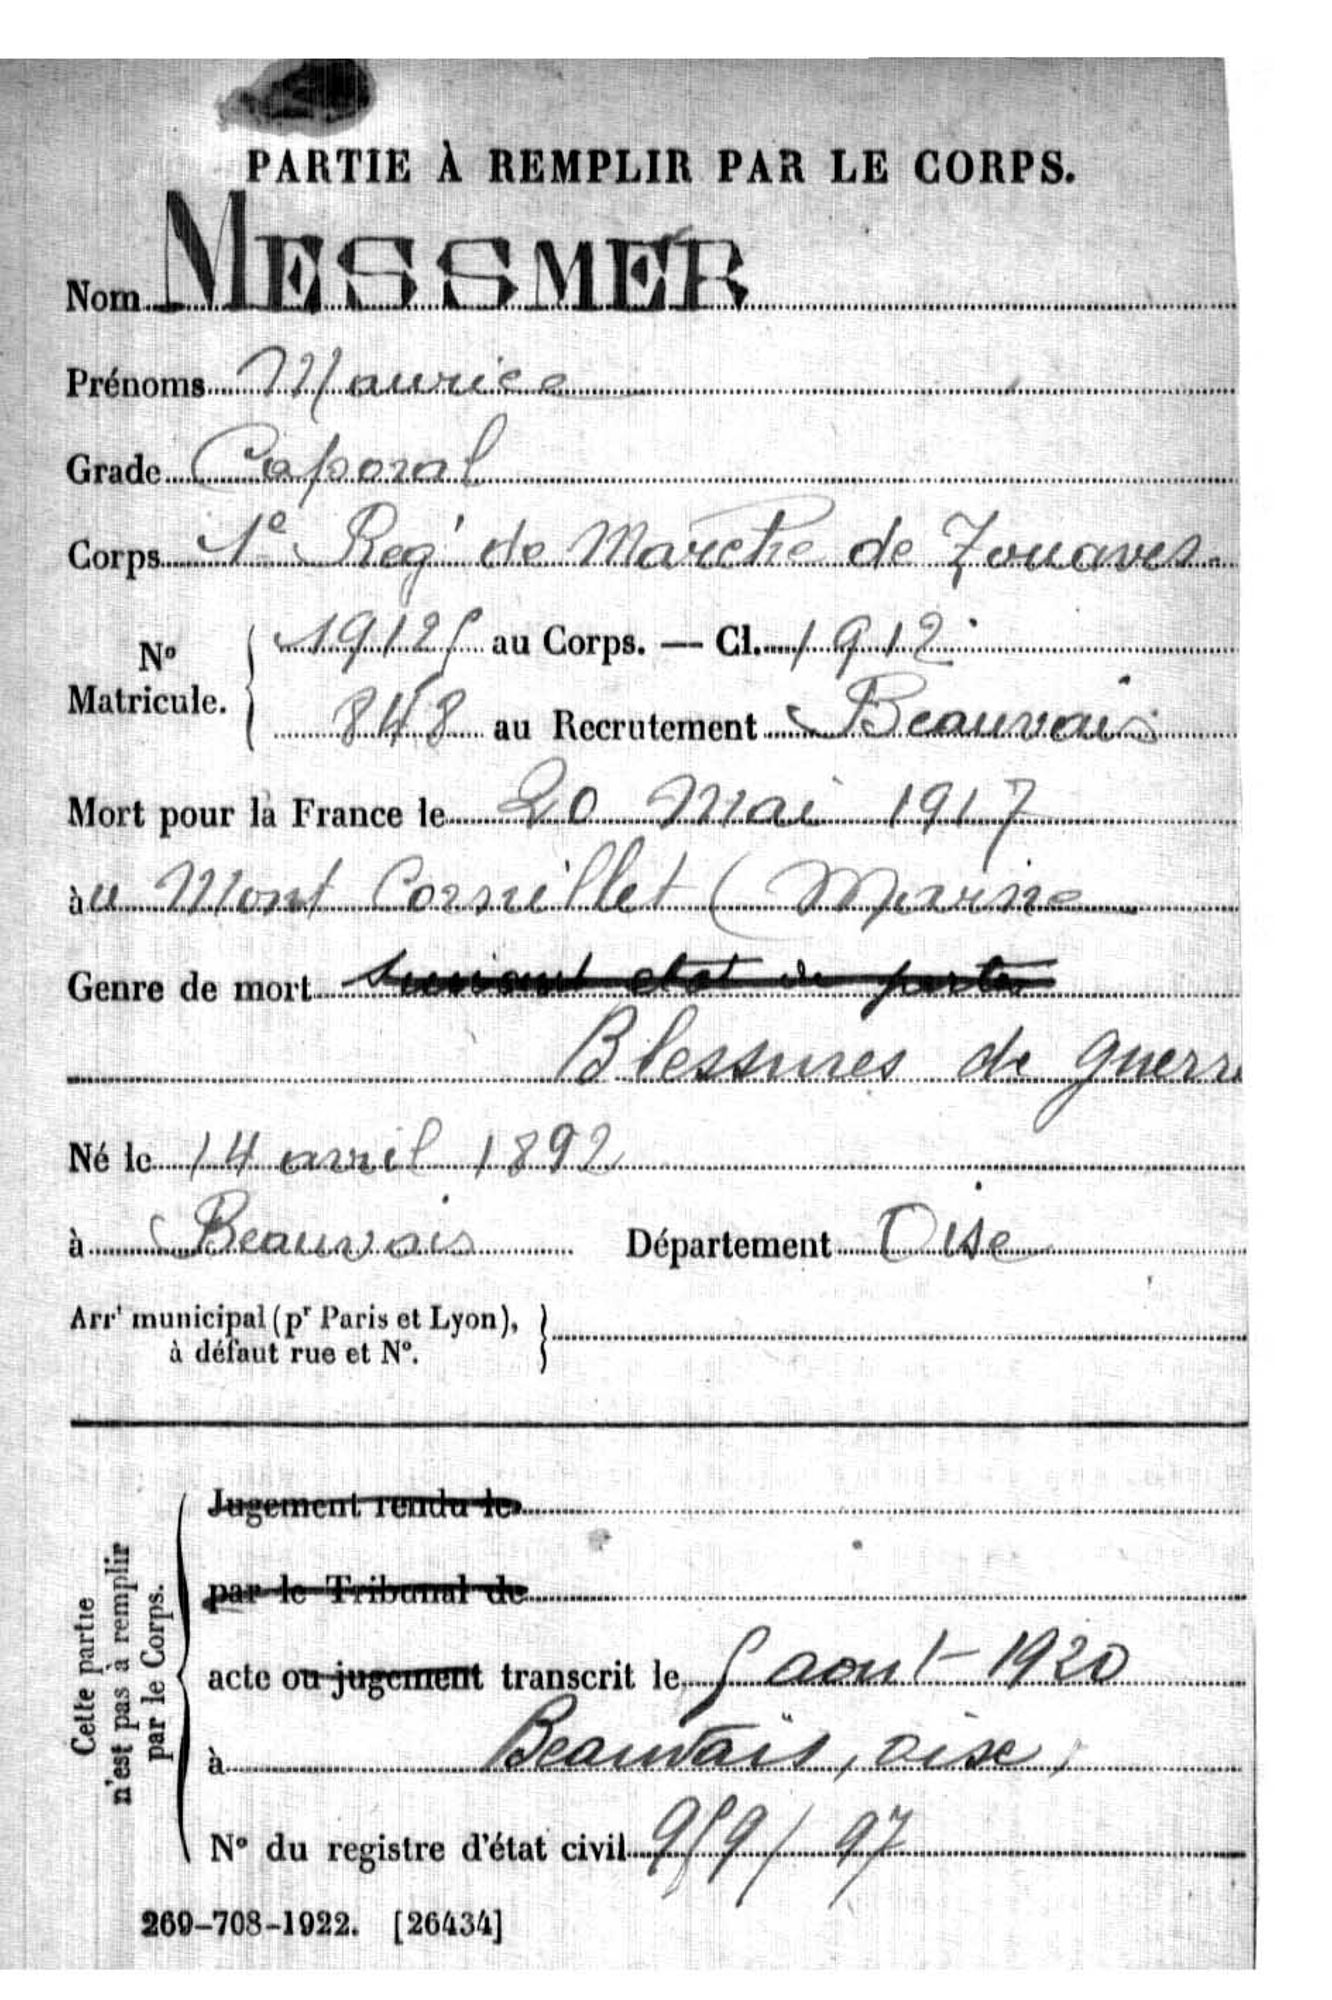 PARTIE À REMPLIR PAR LE CORPS.
Nom MESSMER
Prénoms Maurice
Grade Caporal
Corps 1e Regt de Marche de Zouaves
No Matricule. 19125 au Corps. — Cl. 1912
848 au Recrutement Beauvais
Mort pour la France le 20 Mai 1917
àu Mont Cornillet (Marne
Genre de mort suivant état de pertes
Blessures de guerre
Né le 14 avril 1892
à Beauvais Département Oise
Arrt municipal (pr Paris et Lyon),
à défaut rue et No.
Cette partie
n'est pas à remplir
par le Corps.
Jugement rendu le
par le Tribunal de
acte ou jugement transcrit le 5 aout 1920
à Beauvais, oise,
No du registre d'état civil 959/97
269-708-1922. [26434]